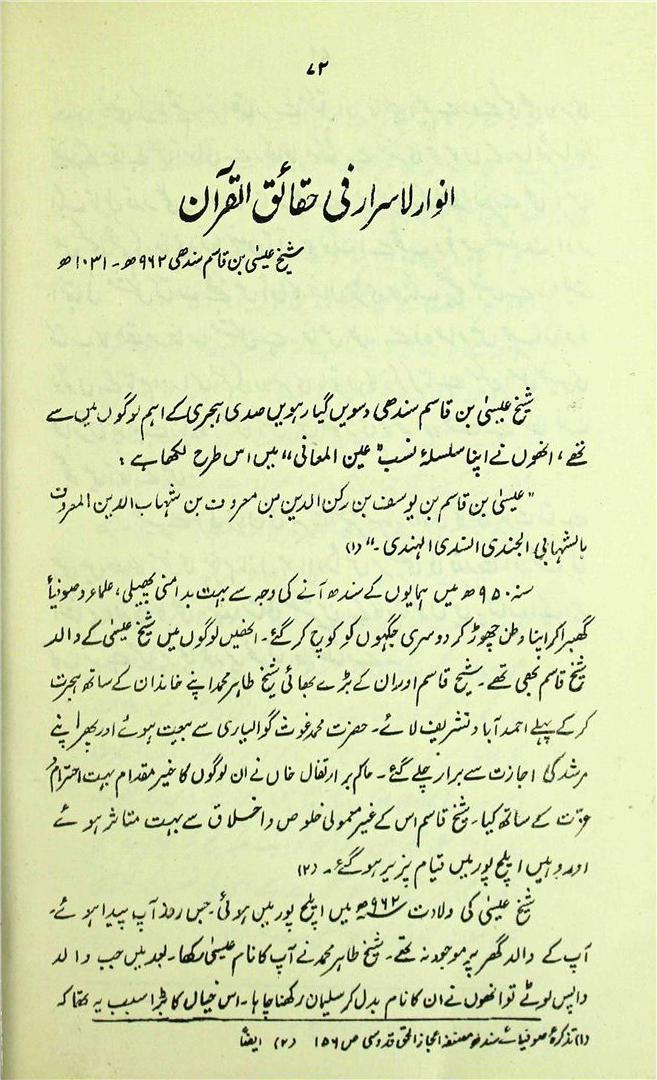 ۷۲
انوار لاسرار فی حقائق القرآن
شیخ عیسیٰ بن قاسم سندھی ۹۶۲ھ - ۱۰۳۱ھ
شیخ عیسیٰ بن قاسم سندھی دسویں گیارہویں صدی ہجری کے اہم لوگوں میں سے
تھے، انھوں نے اپنا سلسلۂ نسب "عین المعانی" میں اس طرح لکھا ہے :
"عیسیٰ بن قاسم بن یوسف بن رکن الدین بن معروف بن شہاب الدین المعروف
بالشہابی الجندی السندی الہندی ۔" (۱)
سنہ ۹۵۰ھ میں ہمایوں کے سندھ آنے کی وجہ سے بہت بدامنی پھیلی، علماء و صوفیأ
گھبرا کر اپنا وطن چھوڑ کر دوسری جگہوں کو کوچ کر گئے۔ انھیں لوگوں میں شیخ عیسیٰ کے والد
شیخ قاسم بھی تھے۔ شیخ قاسم اور ان کے بڑے بھائی شیخ طاہر محمد اپنے خاندان کے ساتھ ہجرت
کر کے پہلے احمد آباد تشریف لائے۔ حضرت محمد غوث گوالیاری سے بیعت ہوئے اور پھر اپنے
مرشد کی اجازت سے برار چلے گئے۔ حاکم برار تفال خاں نے ان لوگوں کا خیر مقدام بہت احترام و
عزت کے ساتھ کیا۔ شیخ قاسم اس کے غیر معمولی خلوص و اخلاق سے بہت متاثر ہوئے
اور وہیں ایلچ پور میں قیام پزیر ہو گئے۔ (۲)
شیخ عیسیٰ کی ولادت ۹۶۲ھ میں ایلچ پور میں ہوئی۔ جس روز آپ پیدا ہوئے۔
آپ کے والد گھر پر موجود نہ تھے۔ شیخ طاہر محمد نے آپ کا نام عیسیٰ رکھا۔ بعد میں جب والد
واپس لوٹے تو انھوں نے ان کا نام بدل کر سلیمان رکھنا چاہا۔ اس خیال کا بڑا سبب یہ تھا کہ
(۱) تذکرۂ صوفیائے سندھ مصنفہ اعجاز الحق قدوسی ص ۱۵۶ (۲) ایضًا